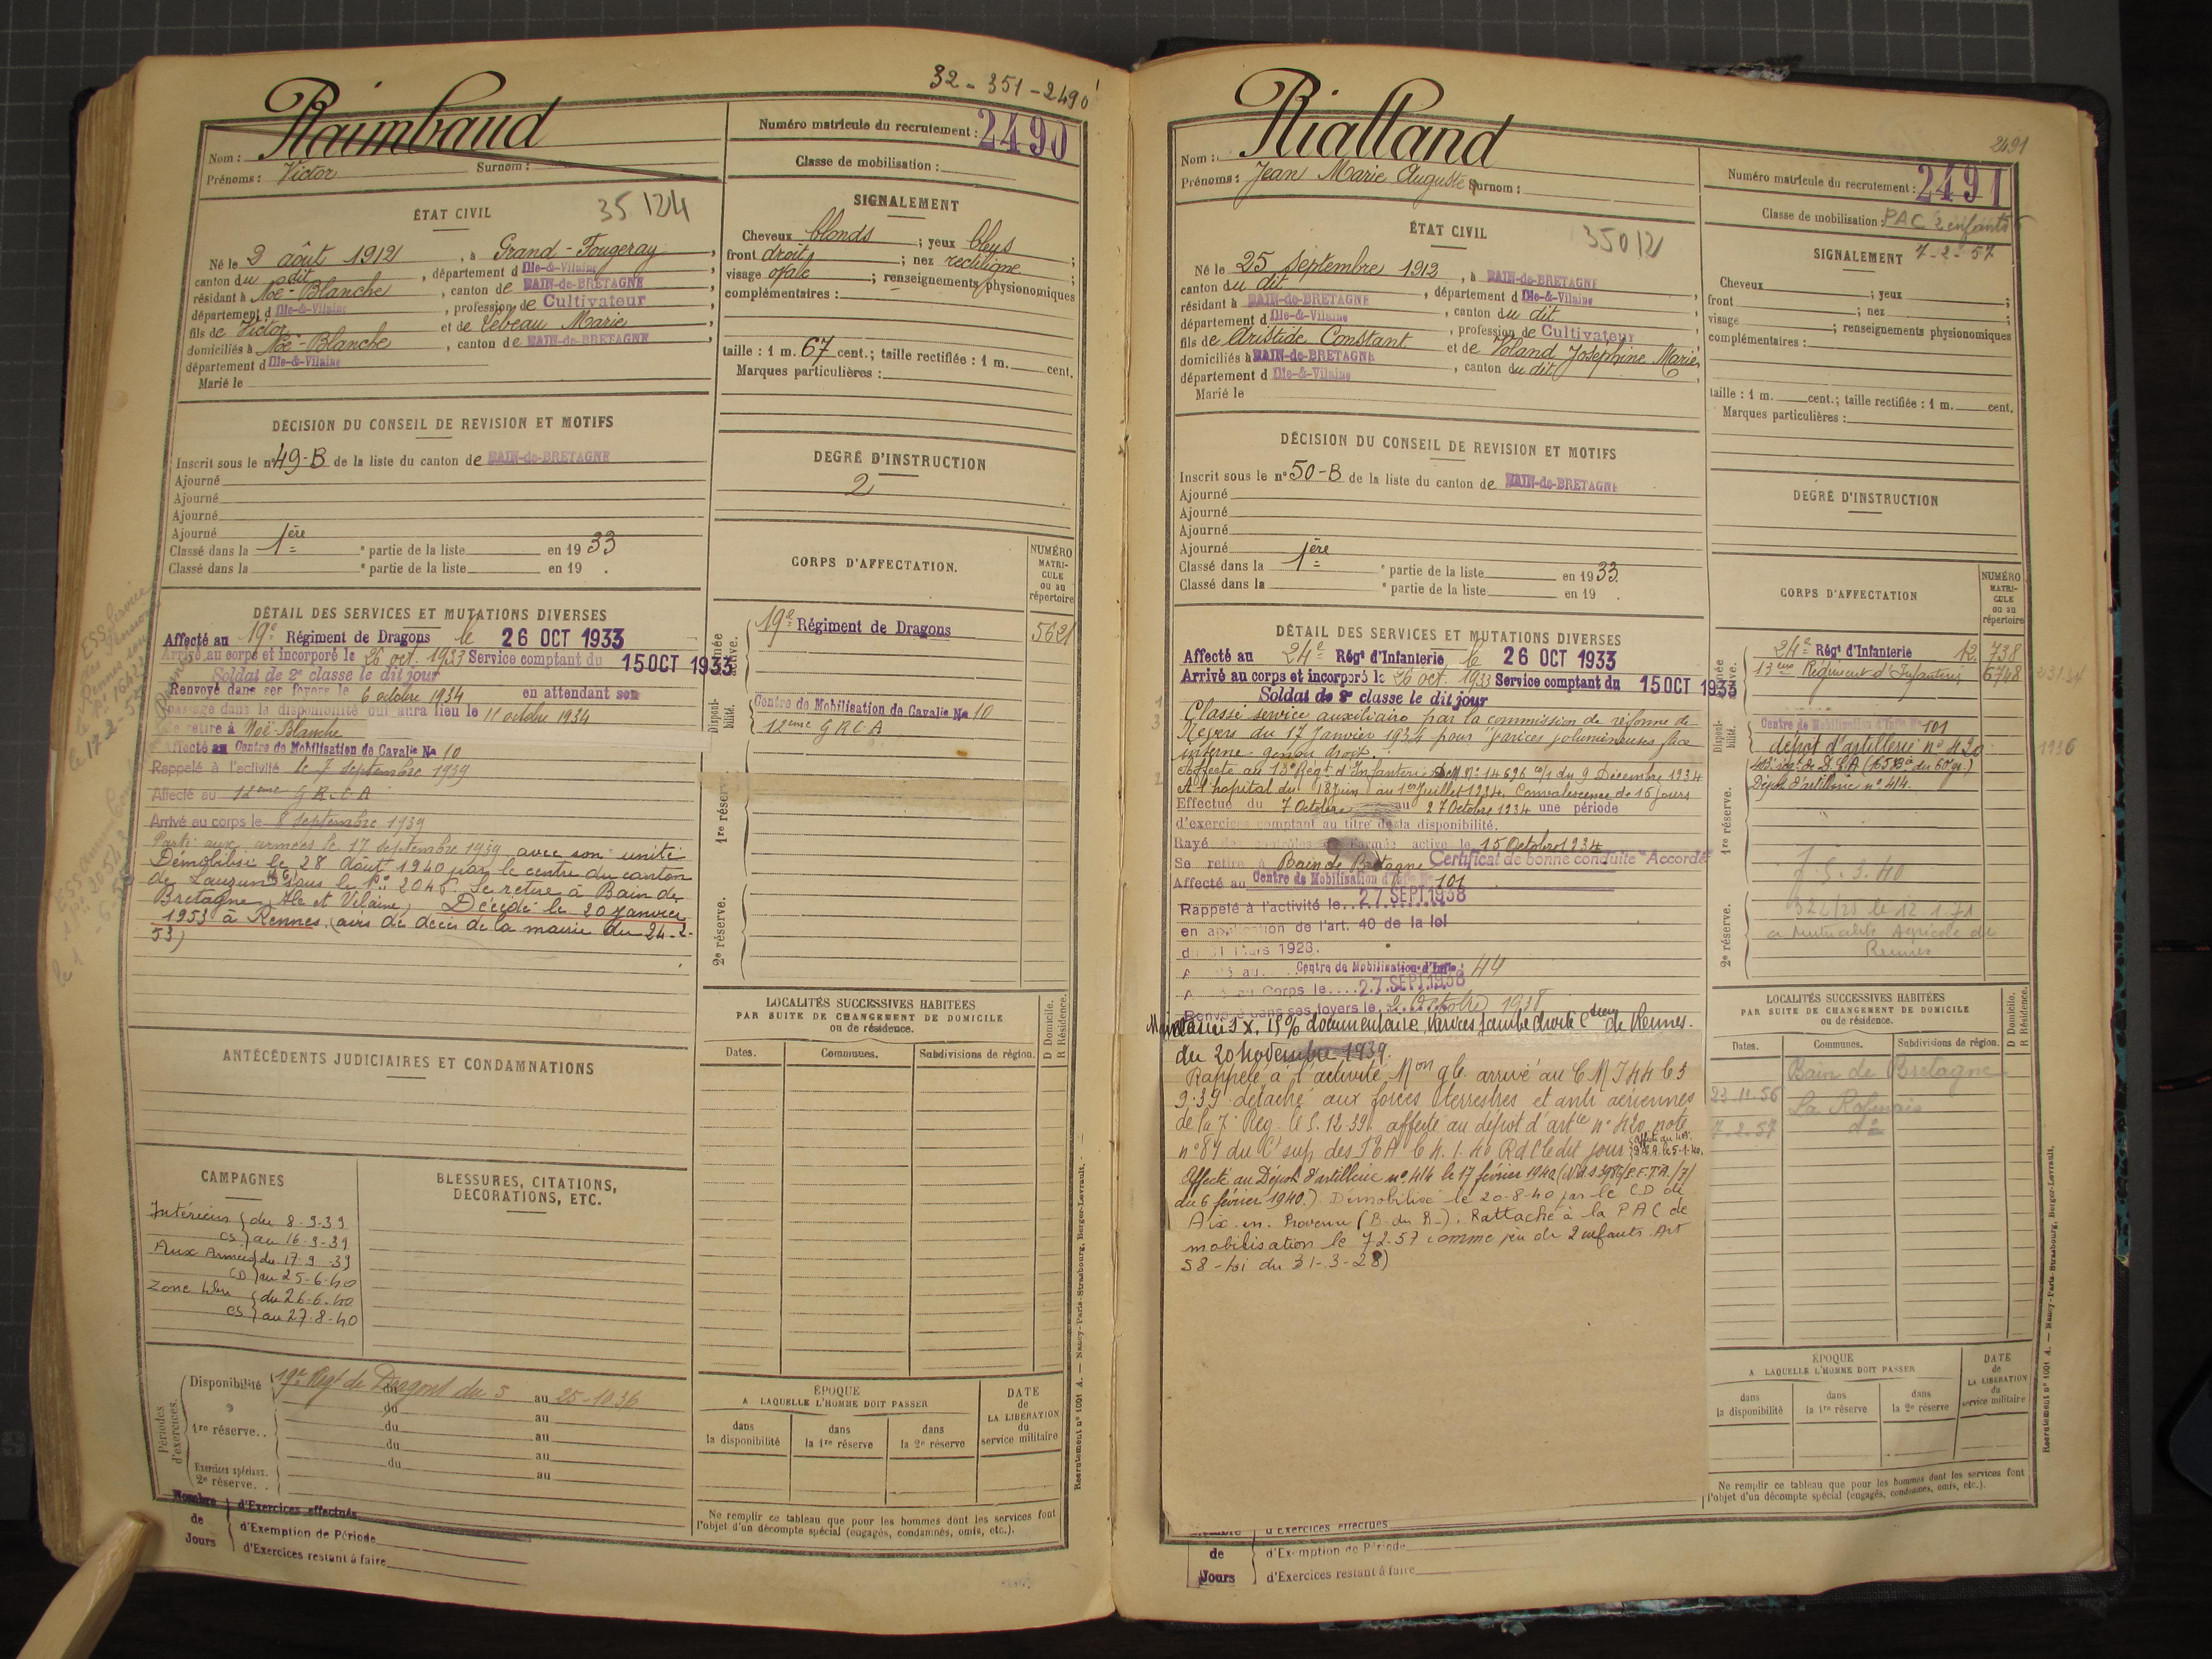 32 - 351 - 2490
Raimbaud
Nom :
Prénoms : Victor Surnom :
Numéro matricule du recrutement : 2490
Classe de mobilisation :
ÉTAT CIVIL
35124
Né le 3 août 1912, à Grand-Fougeray,
canton du dit, département d Ille-&-Vilaine
résidant à Noë-Blanche, canton de BAIN-de-BRETAGNE
département d Ille-&-Vilaine, profession de Cultivateur
fils de Victor et de Lebeau Marie
domiciliés à Noë-Blanche, canton de BAIN-de-BRETAGNE
département d Ille-&-Vilaine
Marié le
SIGNALEMENT
Cheveux blonds ; yeux bleus ;
front droit ; nez rectiligne ;
visage ovale ; renseignements physionomiques
complémentaires :
taille : 1 m. 67 cent.; taille rectifiée : 1 m. cent.
Marques particulières :
DÉCISION DU CONSEIL DE REVISION ET MOTIFS
Inscrit sous le n° 49-B de la liste du canton de BAIN-de-BRETAGNE
Ajourné
Ajourné
Ajourné
Ajourné
Classé dans la 1ère partie de la liste en 1933
Classé dans la partie de la liste en 19 .
DEGRÉ D'INSTRUCTION
2
DÉTAIL DES SERVICES ET MUTATIONS DIVERSES
Affecté au 19e Régiment de Dragons le 26 OCT 1933
Arrivé au corps et incorporé le 26 oct. 1933 Service comptant du 15 OCT 1933
Soldat de 2e classe le dit jour
Renvoyé dans ses foyers le 6 octobre 1934 en attendant son
passage dans la disponibilité qui aura lieu le 11 octobre 1934
Se retire à Noë-Blanche
Affecté au Centre de Mobilisation de Cavalie No 10
Rappelé à l'activité le 7 septembre 1939
Affecté au 12eme G R C A
Arrivé au corps le 8 septembre 1939
Parti aux armées le 17 septembre 1939 avec son unité
Démobilisé le 28 Août 1940 par le centre du canton
de Lauzun sous le n° 2045 Se retire à Bain de
Bretagne Ille et Vilaine, Décédé le 20 janvier
1953 à Rennes (avis de décès de la mairie du 24-2-
53)
CORPS D'AFFECTATION.
NUMÉRO MATRICULE ou au répertoire
19e Régiment de Dragons 5621
Disponibilité.
Centre de Mobilisation de Cavalie No 10
12eme G R C A
1re réserve.
2e réserve.
ANTÉCÉDENTS JUDICIAIRES ET CONDAMNATIONS
LOCALITÉS SUCCESSIVES HABITÉES
PAR SUITE DE CHANGEMENT DE DOMICILE
ou de résidence.
D Domicile. R Résidence.
Dates. Communes. Subdivisions de région.
CAMPAGNES
Intérieur { du 8-9-39
CS } au 16-9-39
Aux Armées { du 17-9-39
CD } au 25-6-40
Zone libre { du 26-6-40
CS } au 27-8-40
BLESSURES, CITATIONS,
DÉCORATIONS, ETC.
Périodes d'exercices.
Disponibilité 19e Régt de Dragons du 5 au 25-10-36
du au
1re réserve.. du au
du au
Exercices spéciaux. du au
2e réserve. .
Nombre de Jours
d'Exercices effectués
d'Exemption de Période
d'Exercices restant à faire
ÉPOQUE
A LAQUELLE L'HOMME DOIT PASSER
dans la disponibilité dans la 1re réserve dans la 2e réserve
DATE de LA LIBÉRATION du service militaire
Ne remplir ce tableau que pour les hommes dont les services font
l'objet d'un décompte spécial (engagés, condamnés, omis, etc.).
Recrutement n° 1001 A. — Nancy-Paris-Strasbourg, Berger-Levrault.
2491
Rialland
Nom :
Prénoms : Jean Marie Auguste Surnom :
Numéro matricule du recrutement : 2491
Classe de mobilisation : PAC 2 enfants
7-2-57
ÉTAT CIVIL
35012
Né le 25 septembre 1912, à BAIN-de-BRETAGNE
canton du dit, département d Ille-&-Vilaine
résidant à BAIN-de-BRETAGNE, canton du dit
département d Ille-&-Vilaine, profession de Cultivateur
fils de Aristide Constant et de Voland Joséphine Marie
domiciliés à BAIN-de-BRETAGNE, canton du dit
département d Ille-&-Vilaine
Marié le
SIGNALEMENT
Cheveux ; yeux ;
front ; nez ;
visage ; renseignements physionomiques
complémentaires :
taille : 1 m. cent.; taille rectifiée : 1 m. cent.
Marques particulières :
DÉCISION DU CONSEIL DE REVISION ET MOTIFS
Inscrit sous le n° 50-B de la liste du canton de BAIN-de-BRETAGNE
Ajourné
Ajourné
Ajourné
Ajourné
Classé dans la 1ère partie de la liste en 1933
Classé dans la partie de la liste en 19 .
DEGRÉ D'INSTRUCTION
DÉTAIL DES SERVICES ET MUTATIONS DIVERSES
Affecté au 24e Régt d'Infanterie le 26 OCT 1933
Arrivé au corps et incorporé le 26 oct. 1933 Service comptant du 15 OCT 1933
Soldat de 2e classe le dit jour
Classé service auxiliaire par la commission de réforme de
Nevers du 17 janvier 1934 pour varices volumineuses face
interne genou droit.
Affecté au 13e Régt d'Infanterie DM N° 14696 du 9 Décembre 1934
A l'hôpital du 18 juin au 1er Juillet 1934. Convalescence de 15 jours
Effectué du 7 Octobre au 27 Octobre 1934 une période
d'exercices comptant au titre de la disponibilité.
Rayé des contrôles de l'armée active le 15 Octobre 1934
Se retire à Bain de Bretagne Certificat de bonne conduite "Accordé"
Affecté au Centre de Mobilisation d'Infie 101
Rappelé à l'activité le 27 SEPT 1938
en application de l'art. 40 de la loi
du 31 Mars 1928.
au Centre de Mobilisation d'Infie 44
au Corps le 27 SEPT 1938
Renvoyé dans ses foyers le 2 Octobre 1938
15% documentaire, varices jambe droite de Rennes.
du 20 Novembre 1939.
Rappelé à l'activité Mon gle arrivé au C M J 44 le 3
9.39 détaché aux forces terrestres et anti aériennes
de la 7e Rég. le 5.12.39. affecté au dépôt d'artie n° 420 note
n° 87 du Ct sup. des le 4.1.40 Rd C le dit jour
Affecté au Dépôt d'artillerie n° 414 le 17 février 1940
du 6 février 1940.) Démobilisé le 20-8-40 par le CD de
Aix-en-Provence (B. du R.). Rattaché à la PAC de
mobilisation le 7-2-57 comme père de 2 enfants. Art
58 - Loi du 31-3-28)
CORPS D'AFFECTATION
NUMÉRO MATRICULE ou au répertoire
24e Régt d'Infanterie 12 738
13eme Régiment d'Infanterie 6748
Disponibilité.
Centre de Mobilisation d'Infie 101
dépôt d'artillerie n° 420
1936
Dépôt d'artillerie n° 414.
1re réserve.
2e réserve.
le 12.1.71
a Mutualité Agricole de
Rennes
LOCALITÉS SUCCESSIVES HABITÉES
PAR SUITE DE CHANGEMENT DE DOMICILE
ou de résidence.
D Domicile. R Résidence.
Dates. Communes. Subdivisions de région.
Bain de Bretagne
23.11.56
7.2.57 do
ÉPOQUE
A LAQUELLE L'HOMME DOIT PASSER
dans la disponibilité dans la 1re réserve dans la 2e réserve
DATE de LA LIBÉRATION du service militaire
Ne remplir ce tableau que pour les hommes dont les services font
l'objet d'un décompte spécial (engagés, condamnés, omis, etc.).
d'Exercices effectués
de Jours
d'Exemption de Période
d'Exercices restant à faire
Recrutement n° 1001 A. — Nancy-Paris-Strasbourg, Berger-Levrault.